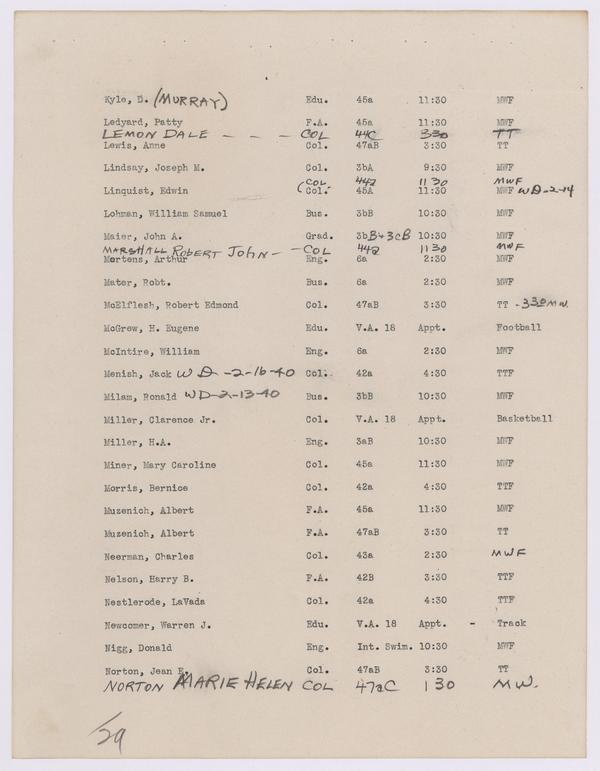 Kyle, D. (MURRAY) Edu. 45a 11:30 MWF
Ledyard, Patty F.A. 45a 11:30 MWF
LEMON DALE - - - COL 44C 330 TT
Lewis, Anne Col. 47aB 3:30 TT
Lindsay, Joseph M. Col. 3bA 9:30 MWF
(COL. 44a 1130 MWF
Linquist, Edwin Col. 45A 11:30 MWF WD-2-14
Lohman, William Samuel Bus. 3bB 10:30 MWF
Maier, John A. Grad. 3bB+3cB 10:30 MWF
MARSHALL ROBERT JOHN - - COL 44a 1130 MWF
Mertens, Arthur Eng. 6a 2:30 MWF
Mater, Robt. Bus. 6a 2:30 MWF
McElflesh, Robert Edmond Col. 47aB 3:30 TT - 330 MW.
McGrew, H. Eugene Edu. V.A. 18 Appt. Football
McIntire, William Eng. 6a 2:30 MWF
Menish, Jack WD-2-16-40 Col. 42a 4:30 TTF
Milam, Ronald WD-2-13-40 Bus. 3bB 10:30 MWF
Miller, Clarence Jr. Col. V.A. 18 Appt. Basketball
Miller, H.A. Eng. 3aB 10:30 MWF
Miner, Mary Caroline Col. 45a 11:30 MWF
Morris, Bernice Col. 42a 4:30 TTF
Muzenich, Albert F.A. 45a 11:30 MWF
Muzenich, Albert F.A. 47aB 3:30 TT
Neerman, Charles Col. 43a 2:30 MWF
Nelson, Harry B. F.A. 42B 3:30 TTF
Nestlerode, LaVada Col. 42a 4:30 TTF
Newcomer, Warren J. Edu. V.A. 18 Appt. - Track
Nigg, Donald Eng. Int. Swim. 10:30 MWF
Norton, Jean E. Col. 47aB 3:30 TT
NORTON MARIE HELEN COL 47aC 130 MW.
29